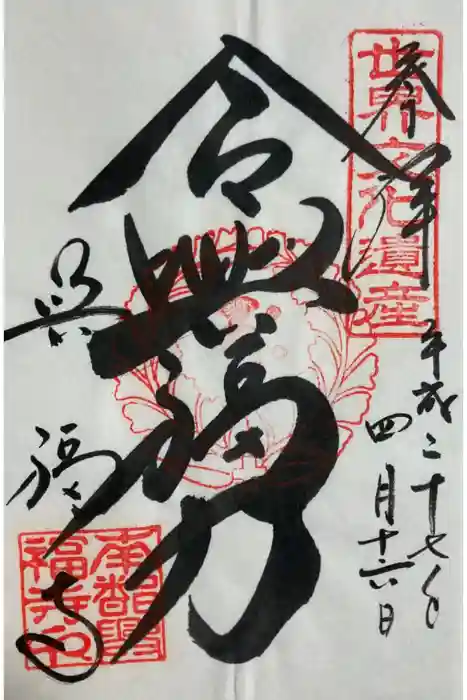 世界文化遺産
奉拝
平成二十七年
四月十六日
令興福力
興福寺
南都興
福寺印